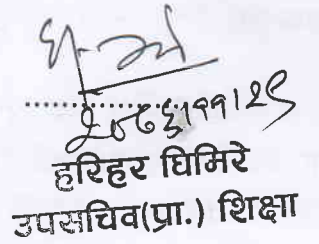 ..................
२०८३।११।२९
हरिहर घिमिरे
उपसचिव(प्रा.) शिक्षा